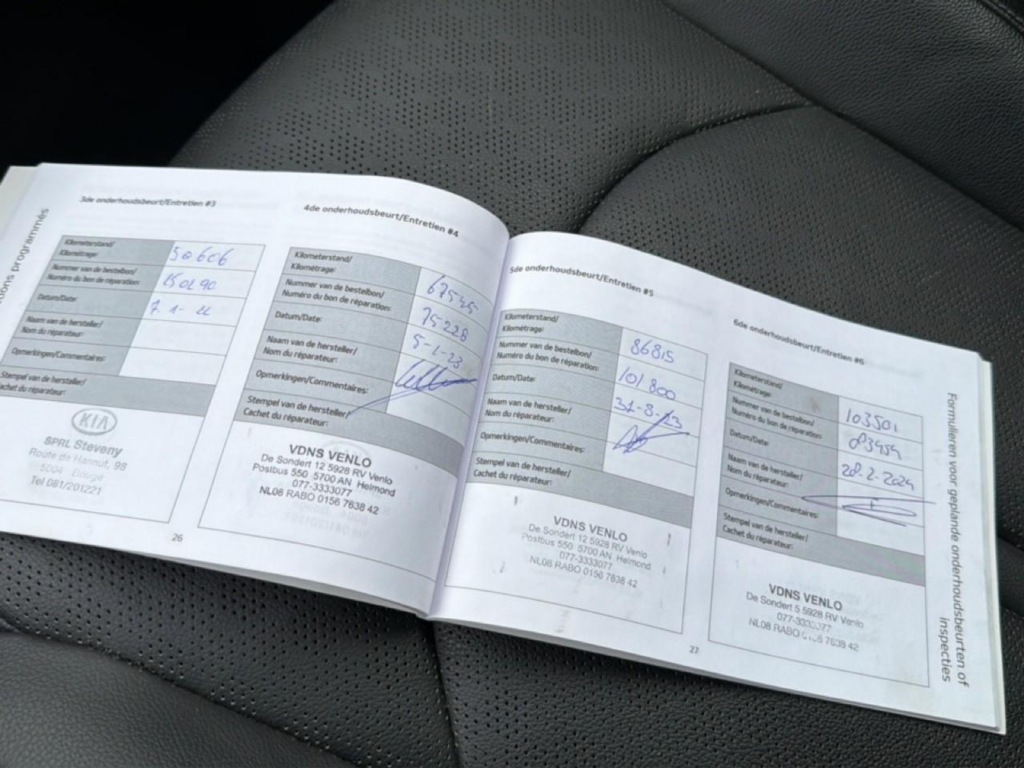 ions programmés
3de onderhoudsbeurt/Entretien #3
Kilometerstand/
Kilométrage:
50606
Nummer van de bestelbon/
Numéro du bon de réparation:
150290
Datum/Date:
Naam van de hersteller/
Nom du réparateur:
Opmerkingen/Commentaires:
Stempel van de hersteller/
Cachet du réparateur:
KIA
SPRL Steveny
Route de Hannut, 98
5004
Tel 081/201221
26
4de onderhoudsbeurt/Entretien #4
Kilometerstand/
Kilométrage:
67545
Nummer van de bestelbon/
Numéro du bon de réparation:
75228
Datum/Date:
5-1-23
Naam van de hersteller/
Nom du réparateur:
Opmerkingen/Commentaires:
Stempel van de hersteller/
Cachet du réparateur:
VDNS VENLO
De Sondert 12 5928 RV Venlo
Postbus 550 5700 AN Helmond
077-3333077
NL08 RABO 0156 7638 42
5de onderhoudsbeurt/Entretien #5
Kilometerstand/
Kilométrage:
86815
Nummer van de bestelbon/
Numéro du bon de réparation:
101800
Datum/Date:
31-8-23
Naam van de hersteller/
Nom du réparateur:
Opmerkingen/Commentaires:
Stempel van de hersteller/
Cachet du réparateur:
VDNS VENLO
De Sondert 12 5928 RV Venlo
Postbus 550 5700 AN Helmond
077-3333077
NL08 RABO 0156 7638 42
27
6de onderhoudsbeurt/Entretien #6
Kilometerstand/
Kilométrage:
103501
Nummer van de bestelbon/
Numéro du bon de réparation:
83454
Datum/Date:
28-2-2024
Naam van de hersteller/
Nom du réparateur:
Opmerkingen/Commentaires:
Stempel van de hersteller/
Cachet du réparateur:
VDNS VENLO
De Sondert 5 5928 RV Venlo
077-3333077
NL08 RABO 0156 7638 42
Formulieren voor geplande onderhoudsbeurten of
inspecties